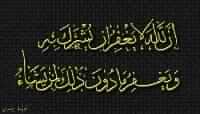 إن الله لا يغفر أن يشرك به
ويغفر ما دون ذلك لمن يشاء